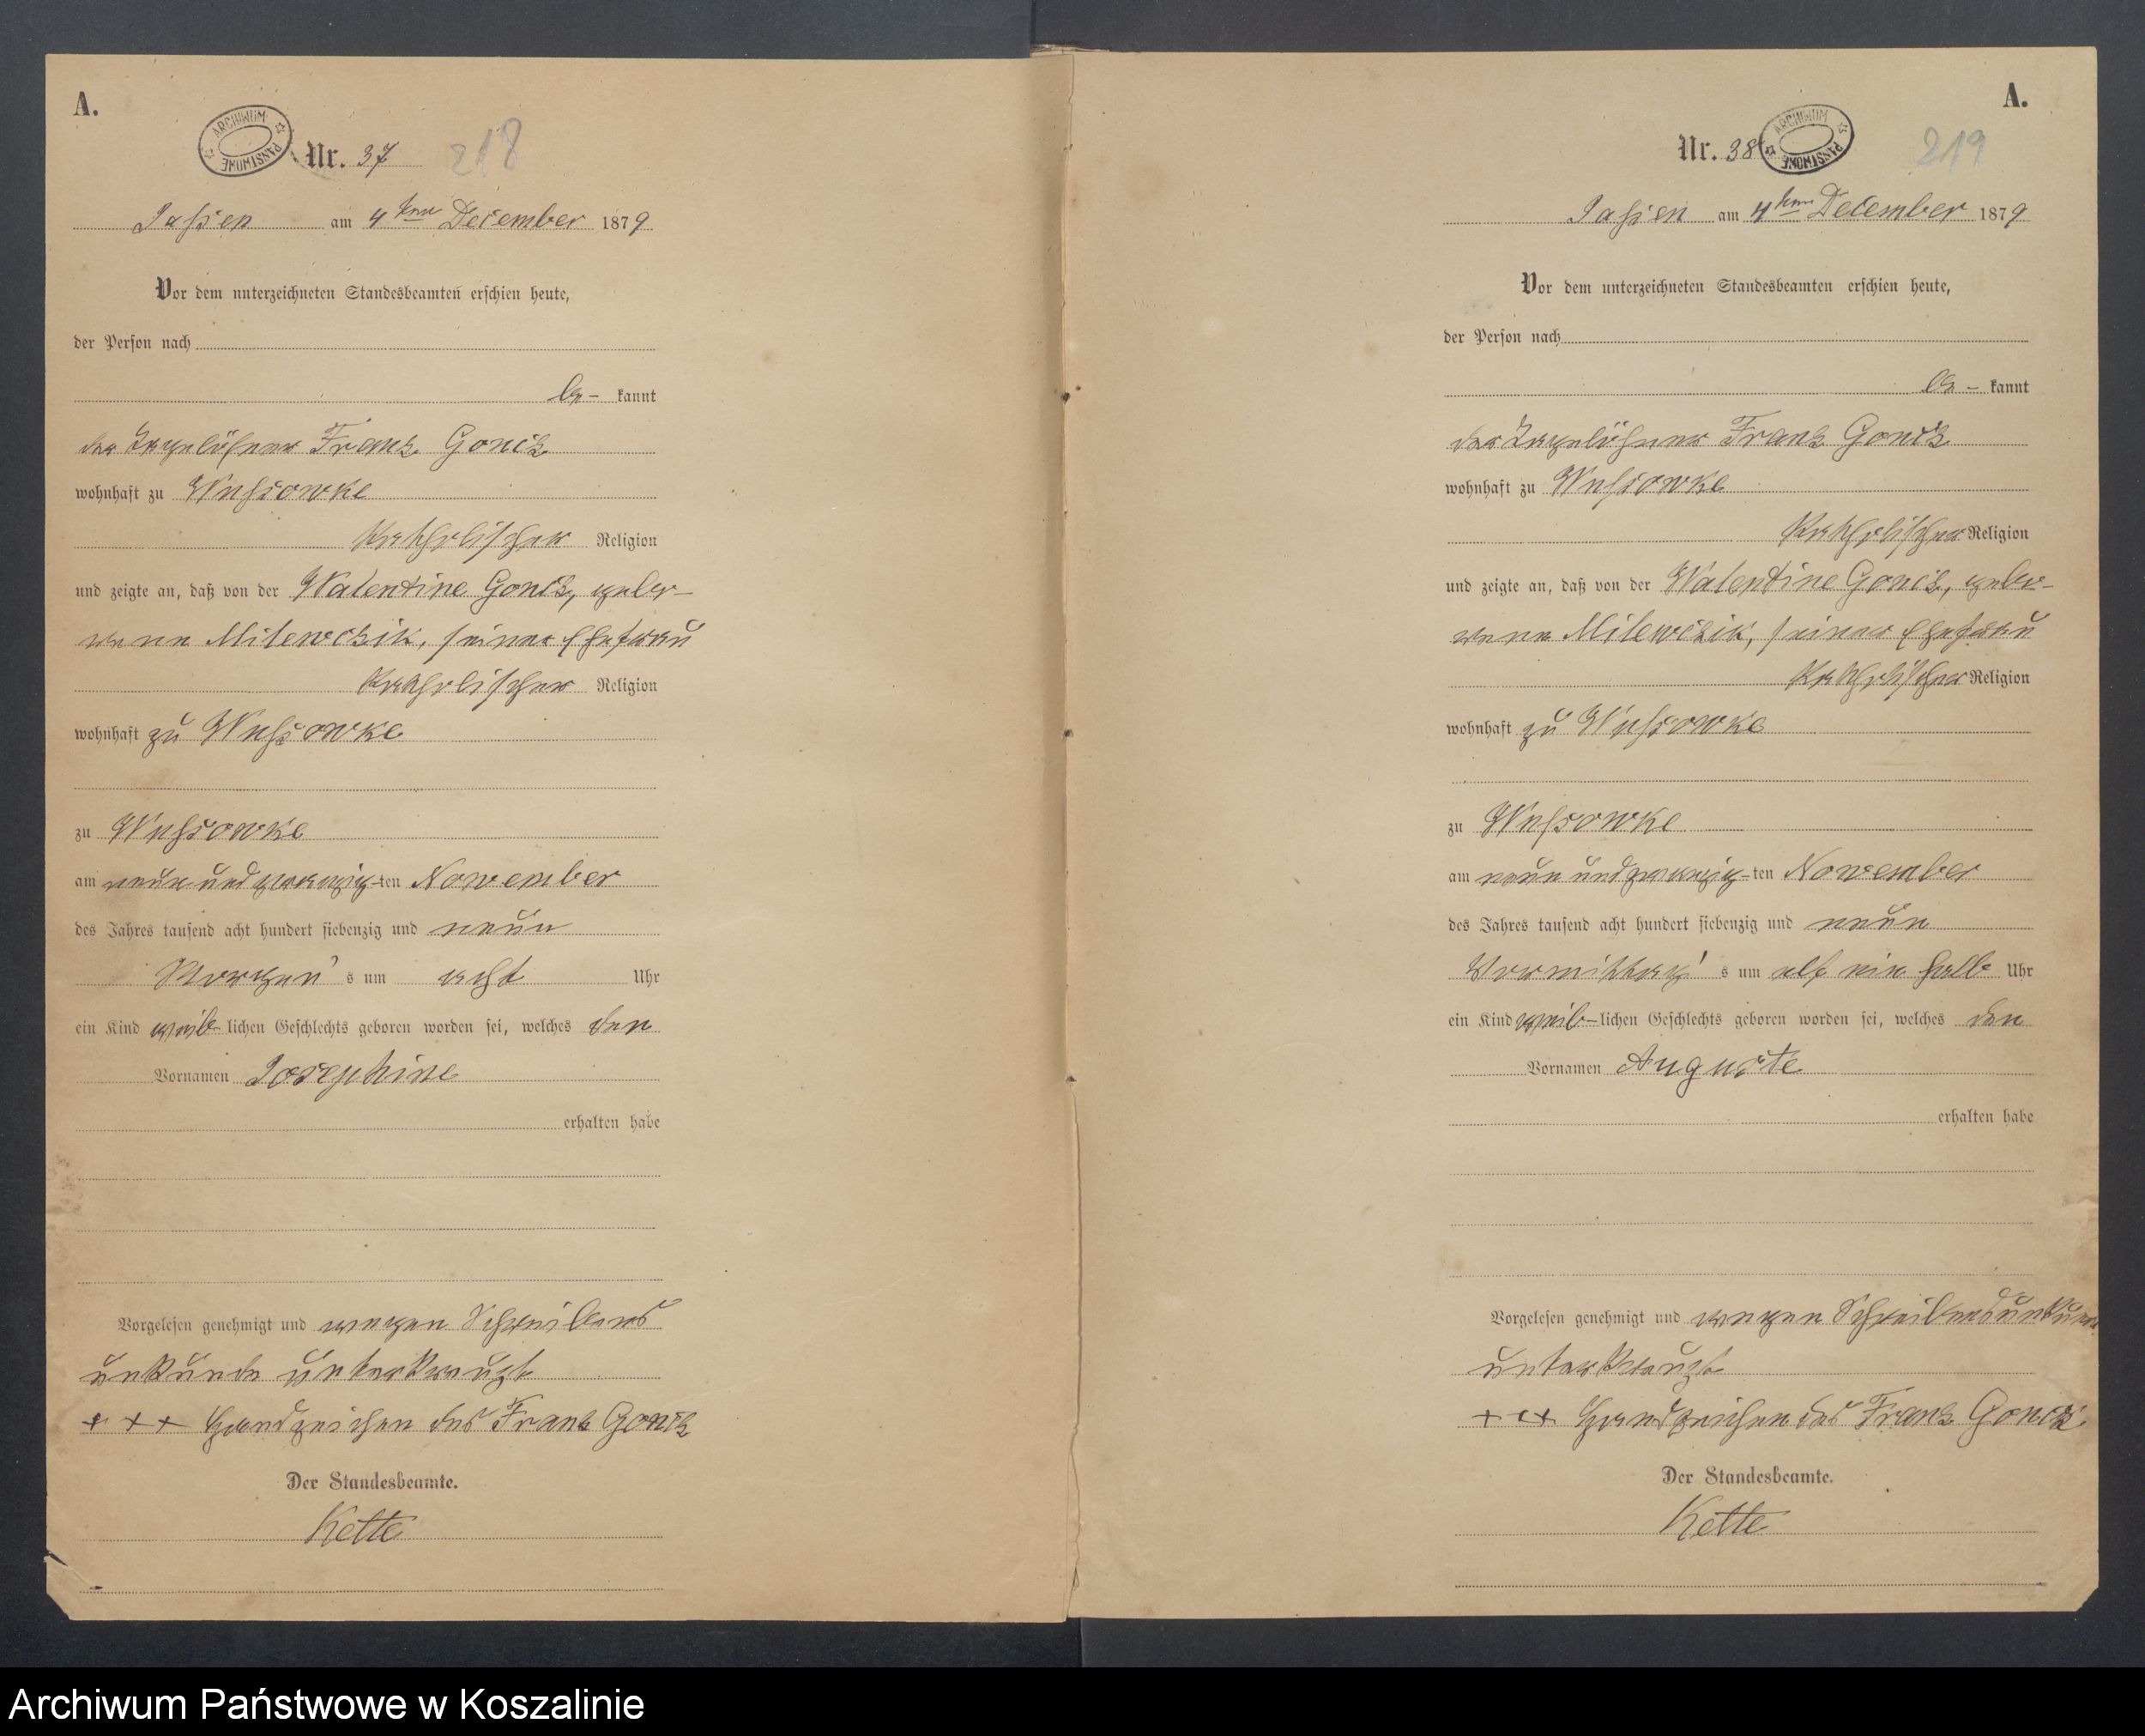 A.
ARCHIWUM PAŃSTWOWE
Nr. 37
218
Jassen am 4ten December 1879
Vor dem unterzeichneten Standesbeamten erschien heute,
der Person nach
be- kannt
der Tagelöhner Franz Goncz
wohnhaft zu Wussowke
Katholischer Religion
und zeigte an, daß von der Valentine Goncz, gebo-
rene Milewczik, seiner Ehefrau
Katholischer Religion
wohnhaft zu Wussowke
zu Wussowke
am neun und zwanzig-ten November
des Jahres tausend acht hundert siebenzig und neun
Morgen's um acht Uhr
ein Kind weib-lichen Geschlechts geboren worden sei, welches den
Vornamen Josephine
erhalten habe
Vorgelesen genehmigt und wegen Schreibens
unkunde unterkreuzt
+ + + Handzeichen des Franz Goncz
Der Standesbeamte.
Kette
A.
Nr. 38
ARCHIWUM PAŃSTWOWE
219
Jassen am 4ten December 1879
Vor dem unterzeichneten Standesbeamten erschien heute,
der Person nach
be- kannt
der Tagelöhner Franz Goncz
wohnhaft zu Wussowke
Katholischer Religion
und zeigte an, daß von der Valentine Goncz, gebo-
rene Milewczik, seiner Ehefrau
Katholischer Religion
wohnhaft zu Wussowke
zu Wussowke
am neun und zwanzig-ten November
des Jahres tausend acht hundert siebenzig und neun
Vormittag's um elf ein halb Uhr
ein Kind weib-lichen Geschlechts geboren worden sei, welches den
Vornamen Auguste
erhalten habe
Vorgelesen genehmigt und wegen Schreibensunkunde
unterkreuzt
+ + + Handzeichen des Franz Goncz
Der Standesbeamte.
Kette
Archiwum Państwowe w Koszalinie